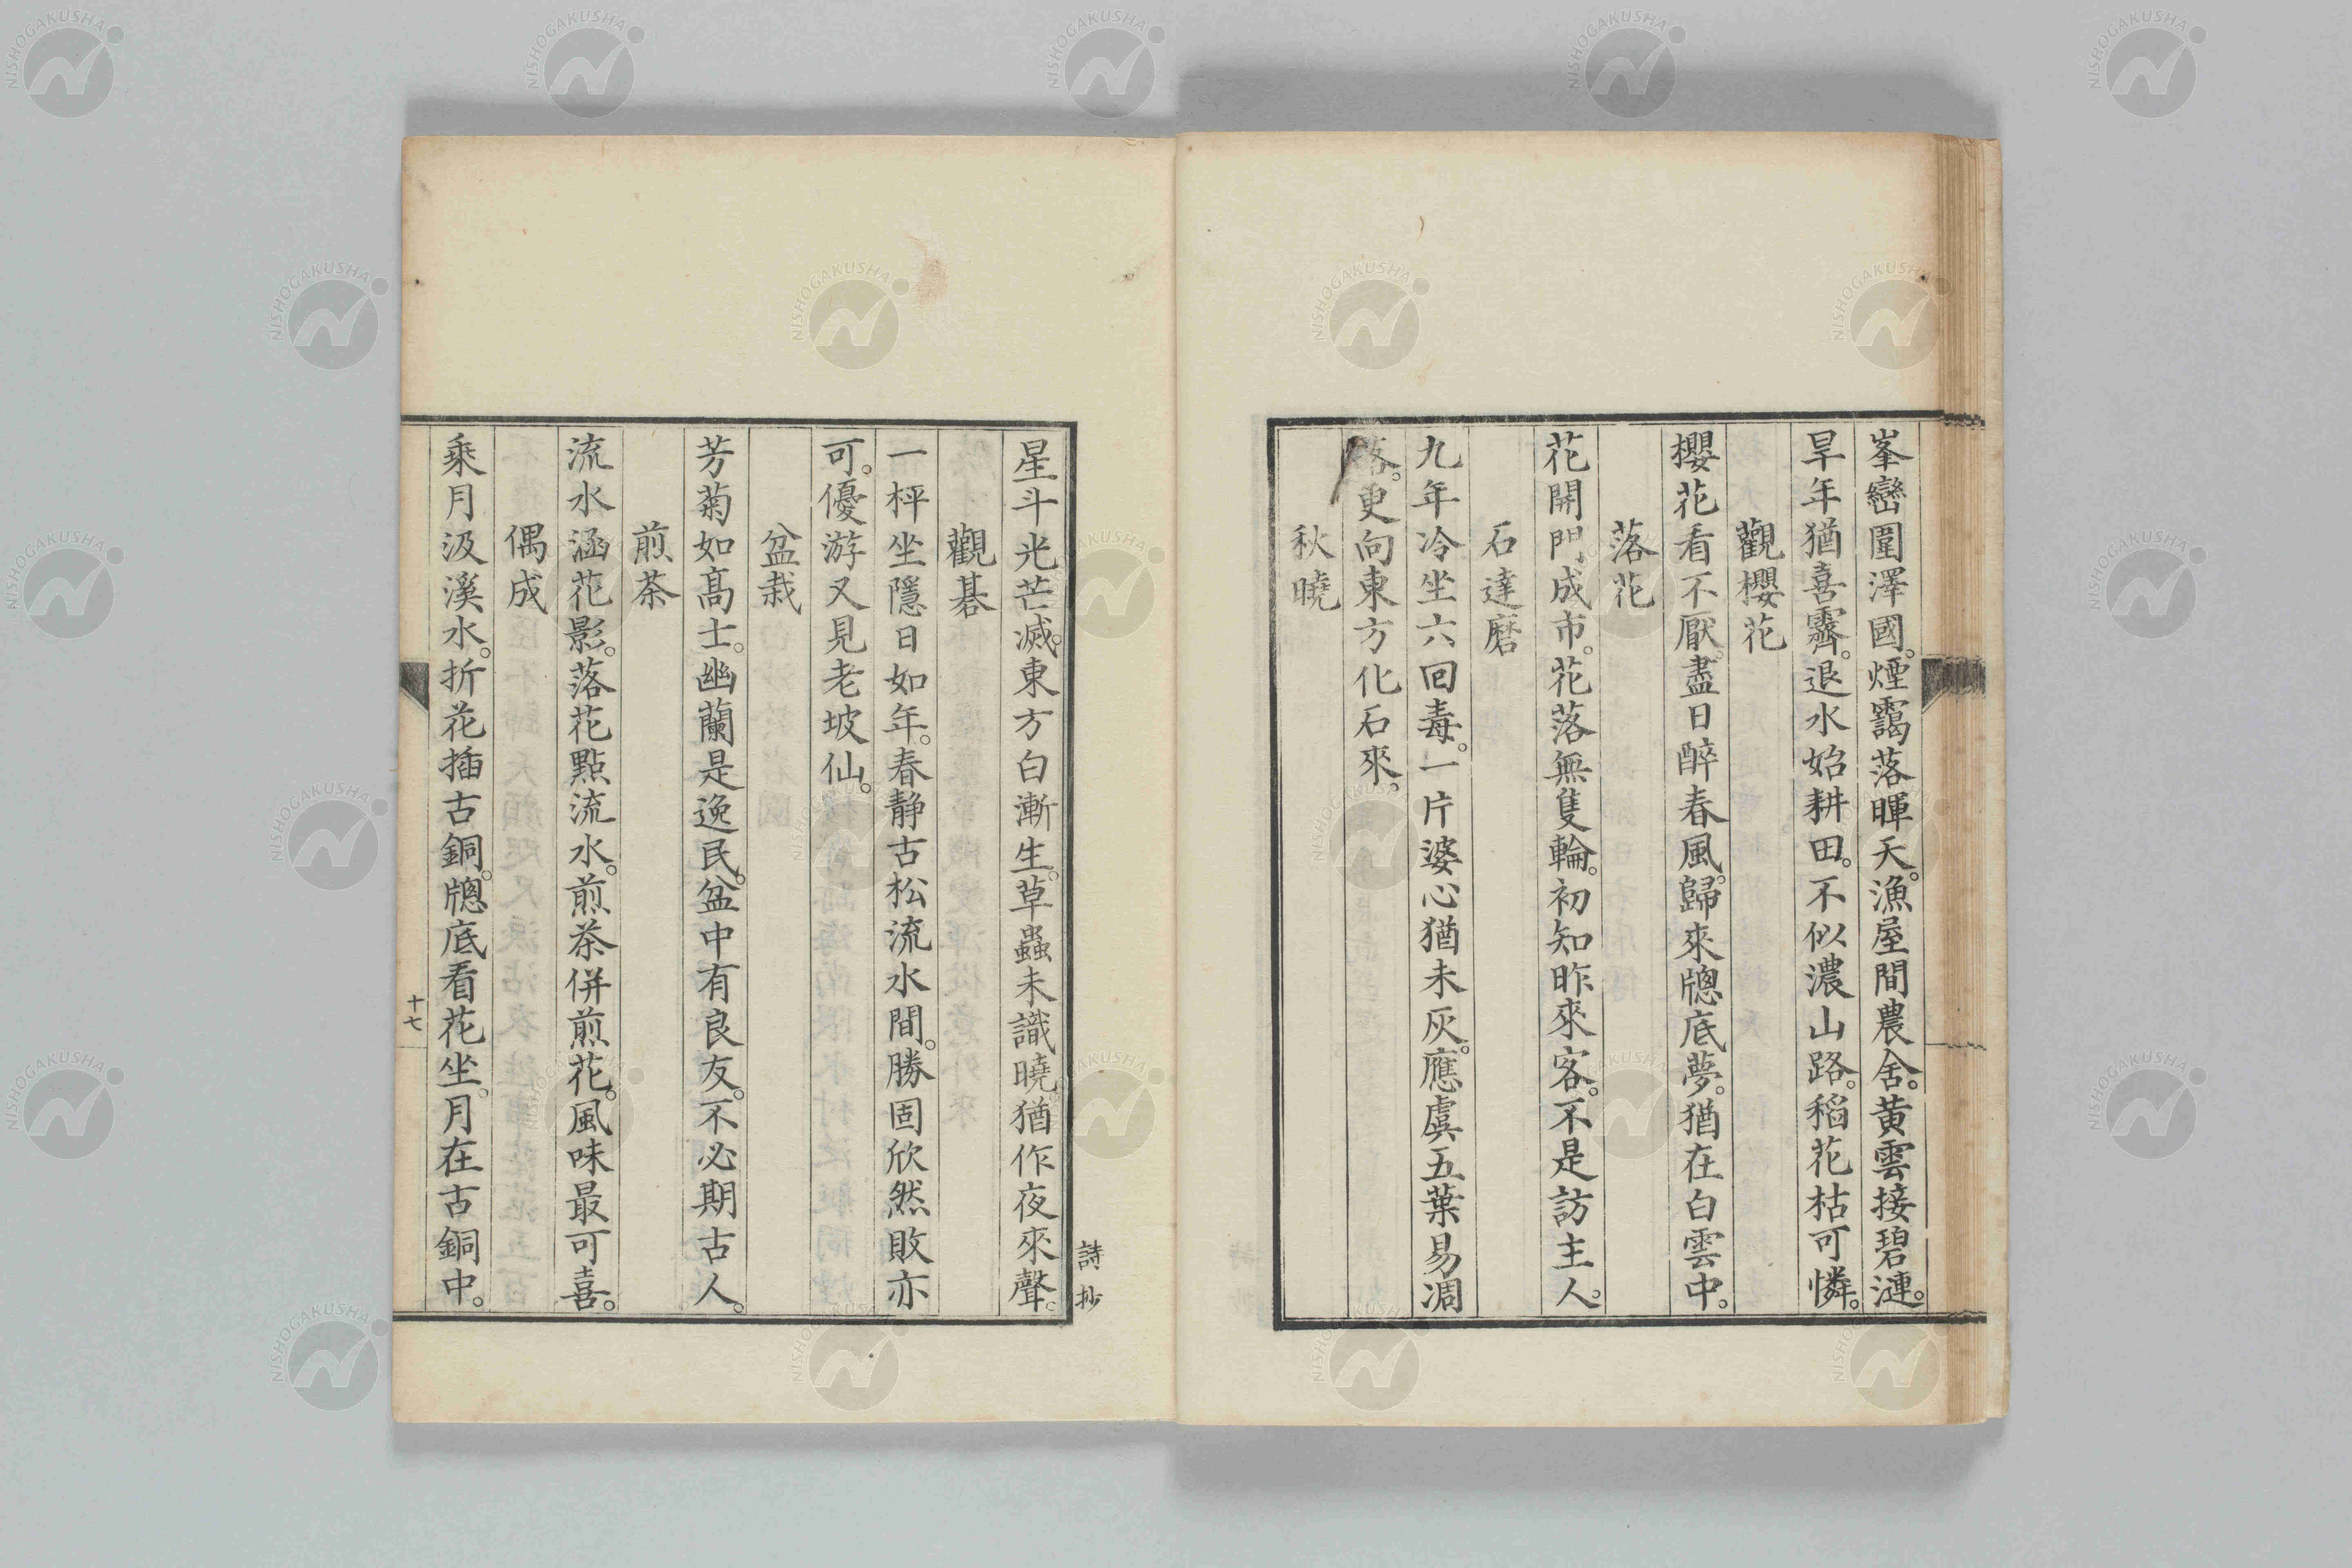 峯巒圍澤國。煙靄落暉天。漁屋間農舍。黄雲接碧漣。
旱年猶喜霽。退水始耕田。不似濃山路。稻花枯可憐。
觀櫻花
櫻花看不厭。盡日醉春風。歸來牕底夢。猶在白雲中。
落花
花開門成市。花落無隻輪。初知昨來客。不是訪主人。
石達磨
九年冷坐六回毒。一片婆心猶未灰。應虞五葉易凋
落。更向東方化石來。
秋曉
星斗光芒滅。東方白漸生。草蟲未識曉。猶作夜來聲。
觀碁
一枰坐隱日如年。春静古松流水間。勝固欣然敗亦
可。優游又見老坡仙。
盆栽
芳菊如高士。幽蘭是逸民。盆中有良友。不必期古人。
煎茶
流水涵花影。落花點流水。煎茶併煎花。風味最可喜。
偶成
乘月汲溪水。折花插古銅。牕底看花坐。月在古銅中。
詩抄
十七
NISHOGAKUSHA